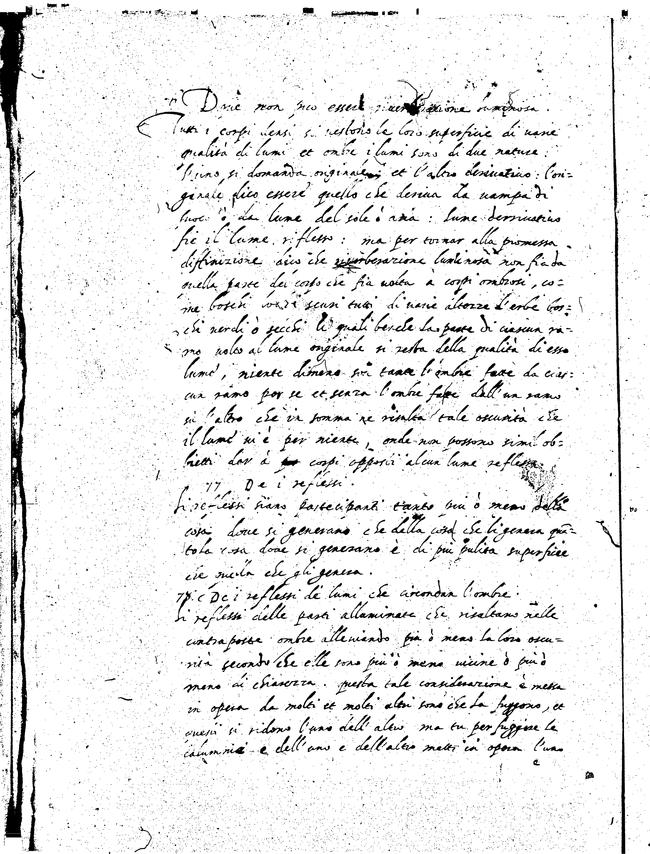 Dove non può esser riverberatione luminosa.
Tutti i corpi densi si vestono le loro superficie di varie
qualità di lumi et ombre i lumi sono di due nature:
l'uno si domanda originale et l'altro derivativo: l'ori=
ginale dico essere quello che deriva da vampa di
fuoco ò da lume del sole ò aria: lume derrivativo
fie il lume riflesso: ma per tornar alla promessa
diffinizione dico che riverberazione luminosa non fia da
quella parte del corpo che fia volta à corpi ombrosi, co=
me boschi scuri tutti di varie altezze d'erbe bos=
chi verdi ò secchi li quali benche la parte di ciascun ra=
mo volto al lume originale si vesta della qualità di esso
lume, niente dimeno son tante l'ombre fatte da cias=
cun ramo per se et senza l'ombre fatte dall'un ramo
sù l'altro che in somma ne risulta tale oscurità che
il lume vi è per niente, onde non possono simil ob=
bietti dar à corpi oppositi alcun lume reflesso.
77 De i reflessi.
Li reflessi siano partecipanti tanto più ò meno della
cosa dove si generano che della cosa che li genera quā=
to la cosa dove si generano è di più pulita superficie
che quella che gli genera.
78. De i reflessi de lumi che circondan l'ombre.
Li reflessi delle parti alluminate che risaltano nelle
contraposte ombre alleviando più ò meno la loro oscu=
rità secondo che elle sono più ò meno vicine ò più ò
meno di chiarezza. questa tale considerazione è messa
in opera da molti et molti altri sono che la fuggono, et
questi si ridono l'uno dell'altro, ma tu per fuggire le
calumnie e dell'uno e dell'altro metti in opera l'uno
e